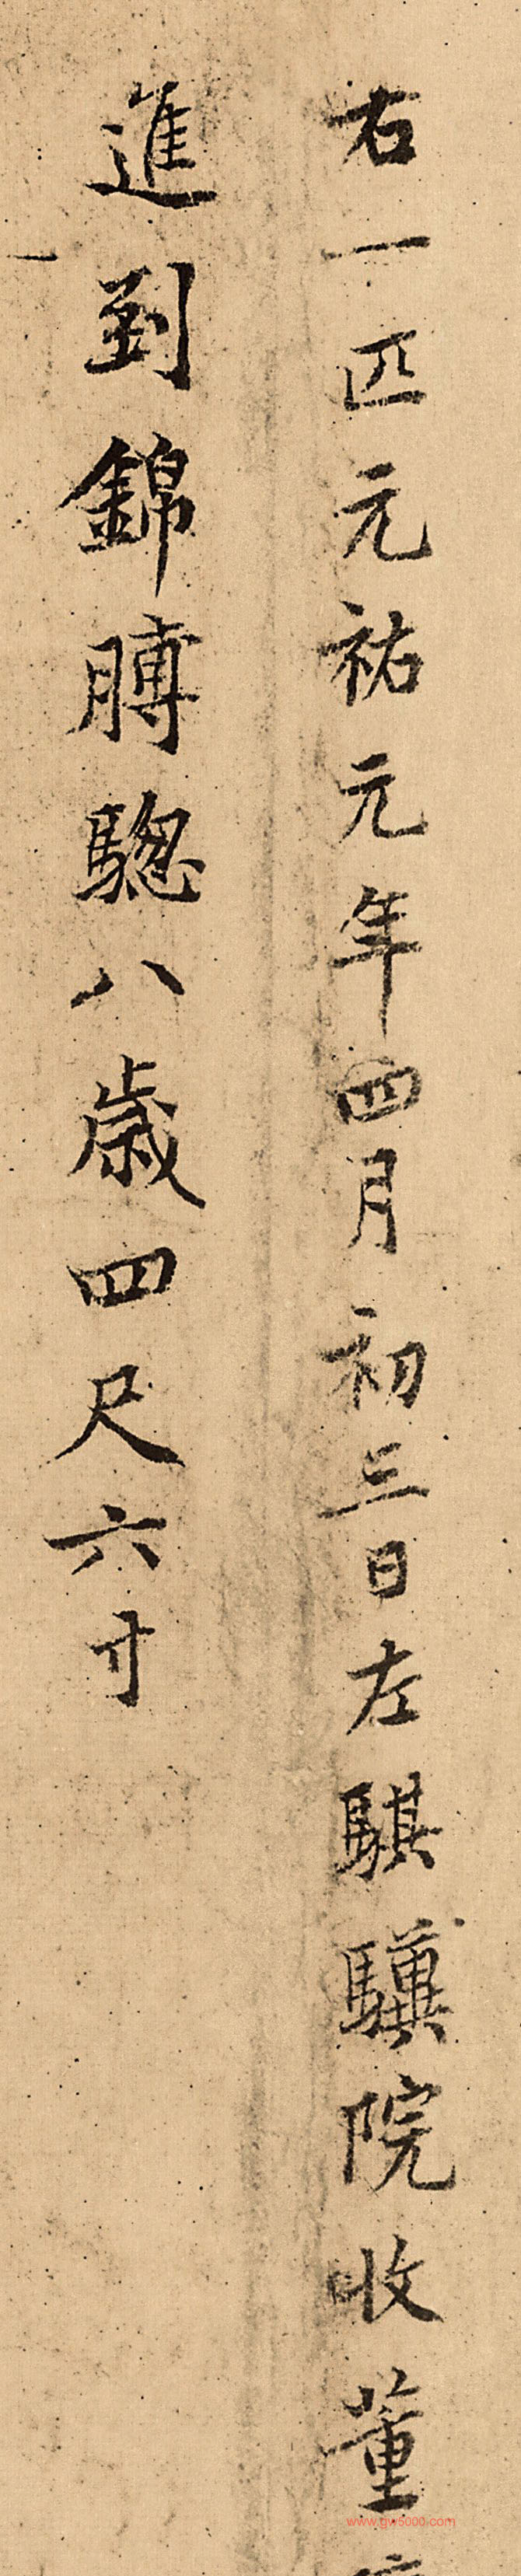 右一匹元祐元年四月初三日左騏驥院收董
進到錦膊驄八歲四尺六寸
www.gw5000.com